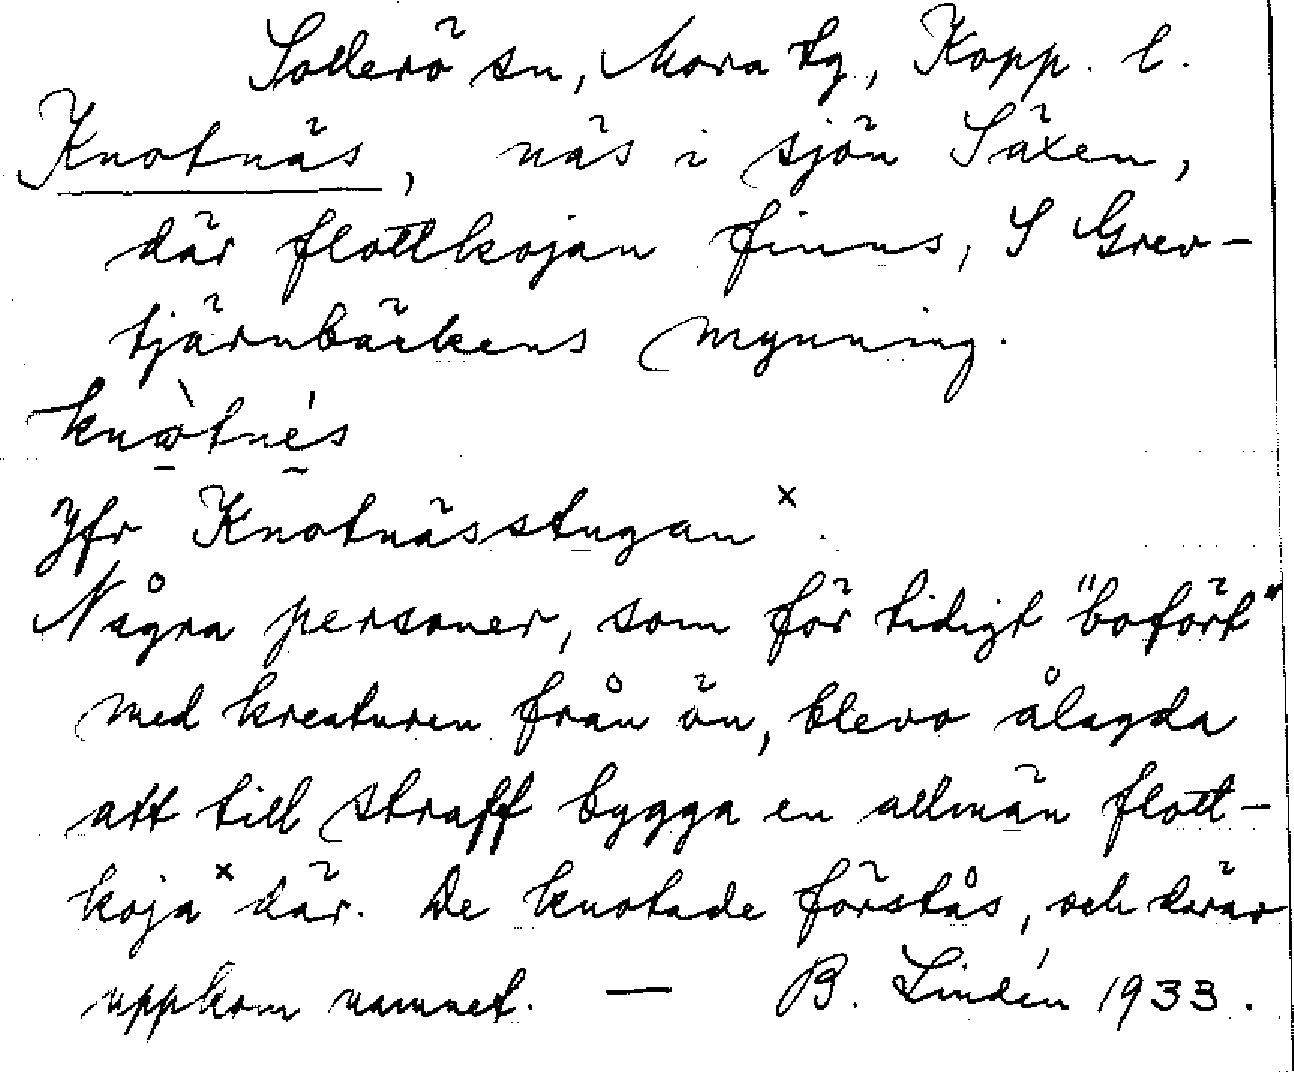 Sollerö sn, Mora tg, Kopp. l.
Knotnäs, näs i sjön Säxen,
där flottkojan finns, S Grev-
tjärnbäckens mynning.
knὼtnés
Jfr Knotnässtugan x.
Några personer, som för tidigt "bofört"
med kreaturen från ön, blevo ålagda
att till straff bygga en allmän flott-
koja x där. De knotade förstås, och därav
uppkom namnet. — B. Lindén 1933.